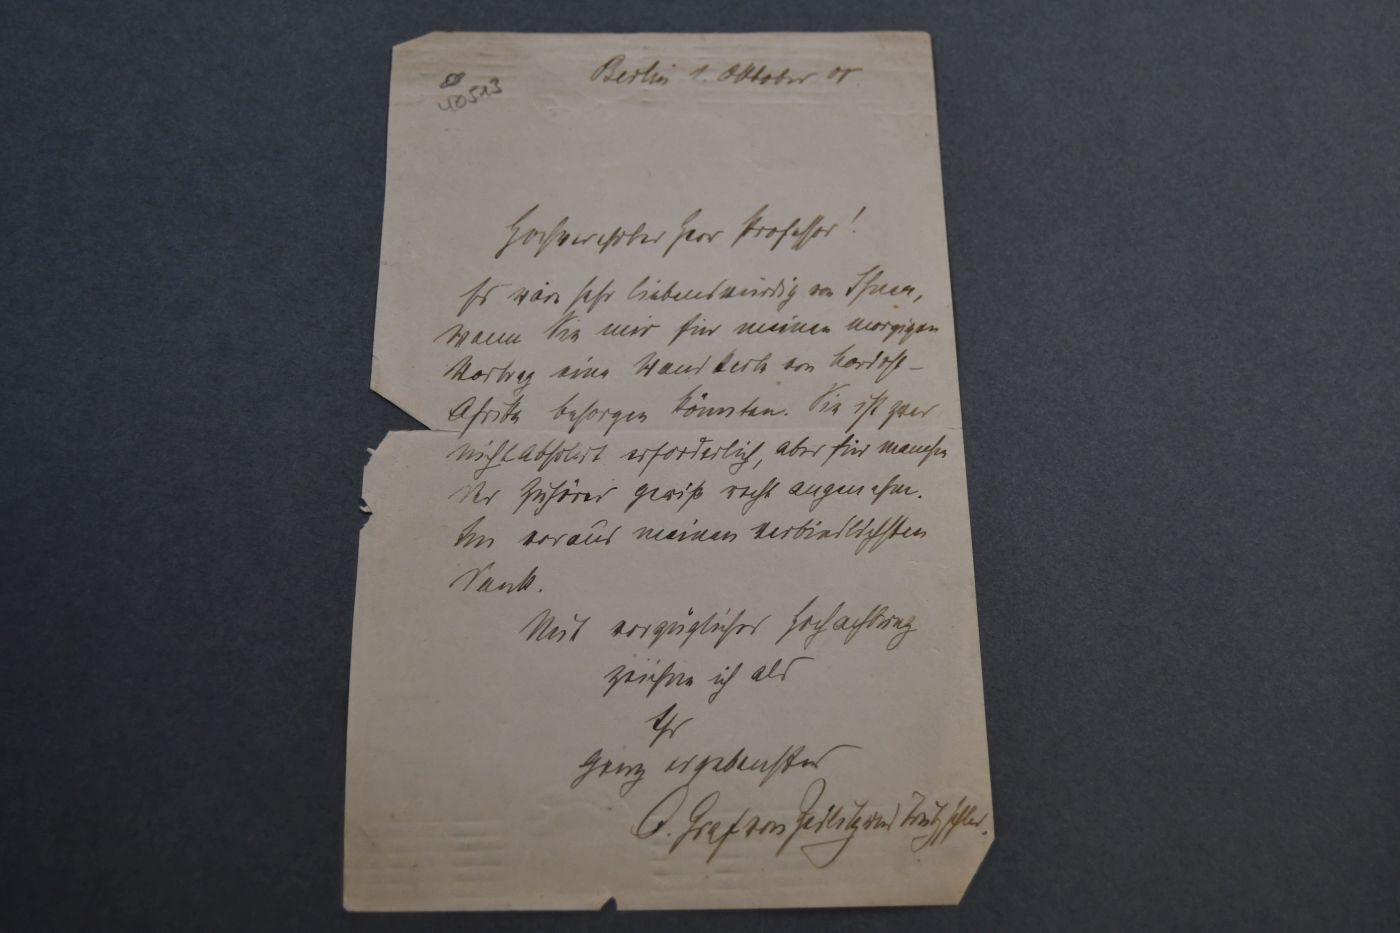 40513
Berlin 1. Oktober 08.
Hochverehrter Herr Professor!
Es wäre sehr liebenswürdig von Ihnen,
wenn Sie mir für meinen morgigen
Vortrag eine Wandkarte von Nordost-
Afrika besorgen könnten. Sie ist zwar
nicht absolut erforderlich, aber für manchen
der Zuhörer gewiß recht angenehm.
Im voraus meinen verbindlichsten
Dank.
Mit vorzüglicher Hochachtung
zeichne ich als
Ihr
ganz ergebenster
O. Graf von Zedlitz und Trützschler.